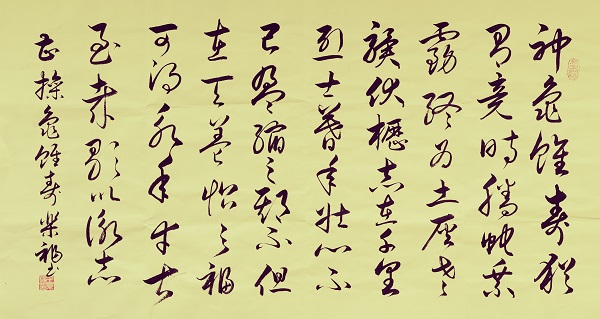 神龜雖壽猶
有竟時騰蛇乘
霧終為土灰老
驥伏櫪志在千里
烈士暮年壯心不
已盈縮之期不但
在天養怡之福
可得永年幸甚
至哉歌以詠志
曹操龜雖壽 福书